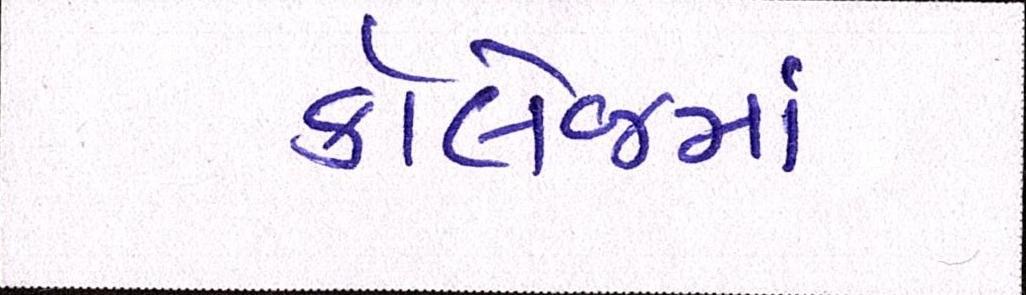 કૉલેજમાં